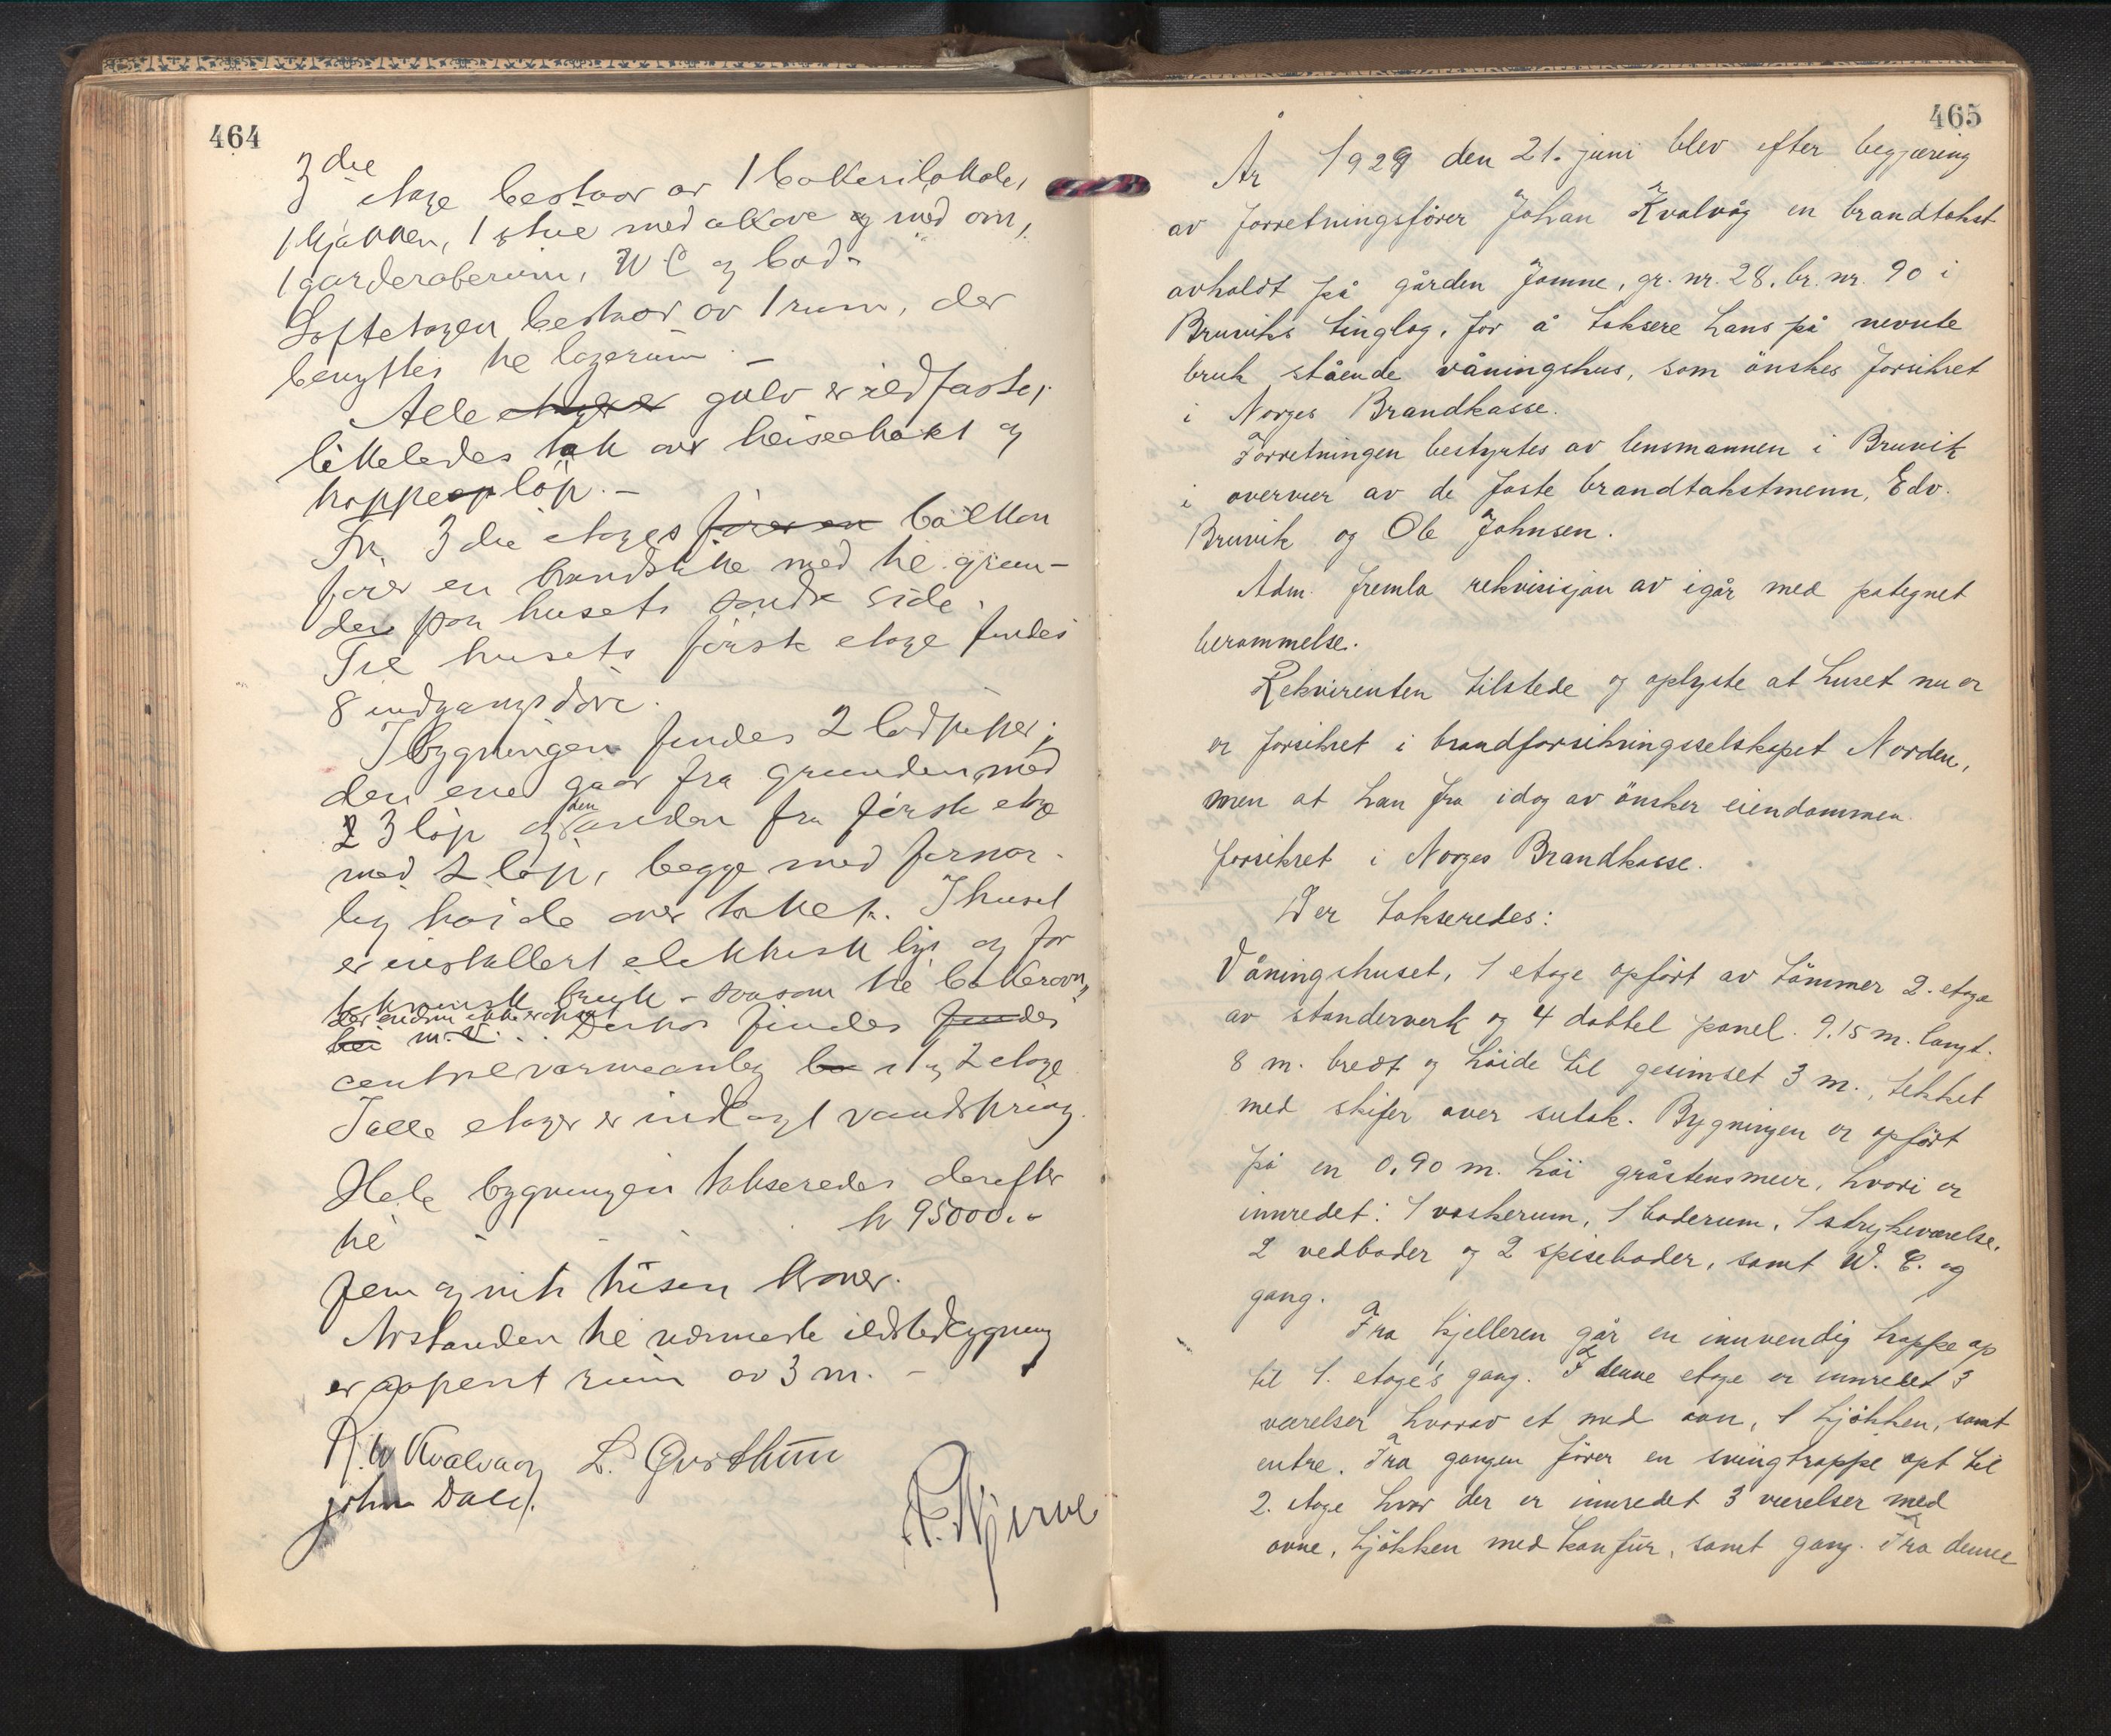 464
3die
etage bestaar av 1 bakerilokale,
1 kjøkken, 1 stue med alkove og med ovn,
1 garderoberum, W.C og bad.
Loftetagen bestaar av 1 rum, der
benyttes til lagerum. -
Alle gulv er ildfaste,
likeledes tak over heisesjakt og
trappeopløp. -
Fra 3die etages balkon
fører en brandstike ned til grun-
den paa husets søndre side.
Til husets første etage findes
8 indgangsdøre.
I bygningen findes 2 brandpiper;
den ene gaar fra grunden med
3 løp og den anden fra første etage
med 2 løp, begge med forsvar-
lig høide over taket. I huset
er installert elektrisk lys og for
teknisk bruk - saasom til bakerovn,
der endnu ikke er
m.v. Derhos findes
centralvarmeanlæg i 1 og 2 etage
I alle etager er indlagt vandspring.
Hele bygningen takseredes derefter
til - - - kr 95000.-
fem og nitti tusen kroner.
Avstanden til nærmeste ildstedbygning
er aapent rum av 3 m. -
Kvalvaag
John Dale.
465
År 1929 den 21. juni blev efter begjæring
av forretningsfører Johan Kvalvåg en brandtakst
avholdt på gården Jamne, gr. nr. 28, br. nr. 90 i
Bruviks tinglag, for å taksere hans på nevnte
bruk stående våningshus, som ønskes forsikret
i Norges Brandkasse.
Forretningen bestyrtes av lensmannen i Bruvik
i overvær av de faste brandtakstmenn, Edv.
Bruvik og Ole Johnsen.
Adm. fremla rekvisisjon av igår med påtegnet
berammelse.
Rekvirenten tilstede og oplyste at huset nu er
er forsikret i brandforsikringsselskapet Norden,
men at han fra idag av ønsker eiendommen
forsikret i Norges Brandkasse.
Der takseredes:
Våningshuset, 1 etage opført av tømmer 2. etage
av standerverk og 4 dobbel panel. 9.15 m. langt.
8 m. bredt og høide til gesimset 3 m., tekket
med skifer over sutak. Bygningen er opført
på en 0,90 m. høi gråstensmur, hvori er
innredet: 1 vaskerum, 1 baderum, 1 strykeværelse,
2 vedboder og 2 spiseboder, samt W. C. og
gang.
Fra kjelleren går en innvendig trappe op
til 1. etage's gang. I denne etage er innredet 3
værelser hvorav et med ovn, 1 kjøkken, samt
entre. Fra gangen fører en svingtrappe opt til
2. etage hvor der er innredet 3 værelser med
ovne, kjøkken med komfur, samt gang. Fra denne